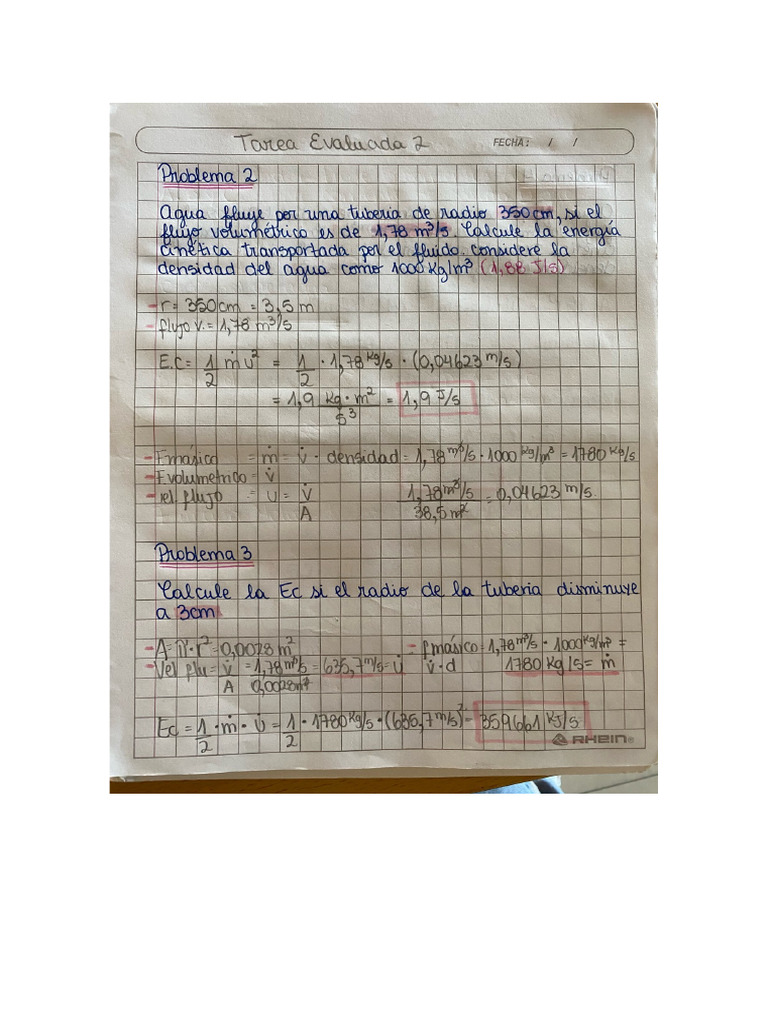 Tarea Evaluada 2 FECHA: / /
Problema 2
Agua fluye por una tuberia de radio 350cm, si el
flujo volumétrico es de 1,78 m³/s. Calcule la energía
cinética transportada por el fluido considere la
densidad del agua como 1000 Kg/m³ (1,88 J/s)
- r = 350cm = 3,5 m
- flujo v. = 1,78 m³/s
E.C = 1/2 ṁ u² = 1/2 · 1,78 kg/s · (0,04623 m/s)
= 1,9 kg · m²/s³ = 1,9 J/s
- Fmásico = ṁ = v̇ · densidad = 1,78 m³/s · 1000 kg/m³ = 1780 kg/s
- F volumetrico = v̇
- vel flujo = u = v̇/A 1,78 m³/s / 38,5 m² = 0,04623 m/s.
Problema 3
Calcule la Ec si el radio de la tuberia disminuye
a 3cm
- A = π · r² = 0,0028 m² - f másico = 1,78 m³/s · 1000 kg/m³ =
- Vel flu = v̇/A = 1,78 m³/s / 0,0028 m² = 635,7 m/s = u̇ v̇ · d 1780 kg/s = ṁ
Ec = 1/2 · ṁ · u̇ = 1/2 · 1780 kg/s · (635,7 m/s)² = 359661 KJ/s
RHEIN®